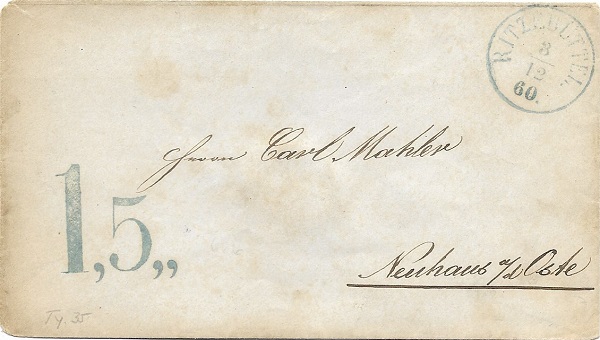 RITZEBÜTTEL
8
12
60.
Herrn Carl Mahler
1,5,,
Neuhaus a/d Oste
Ty. 35